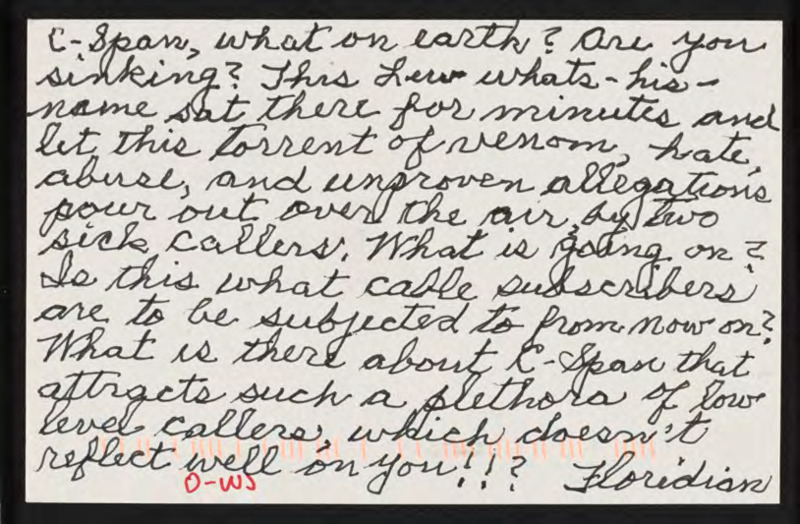 C-Span, what on earth? Are you
sinking? This Lew whats-his-
name sat there for minutes and
let this torrent of venom, hate,
abuse, and unproven allegations
pour out over the air, by two
sick callers. What is going on?
Is this what cable subscribers
are to be subjected to from now on?
What is there about C-Span that
attracts such a plethora of low
level callers, which doesn't
reflect well on you!!? Floridian
O-WS